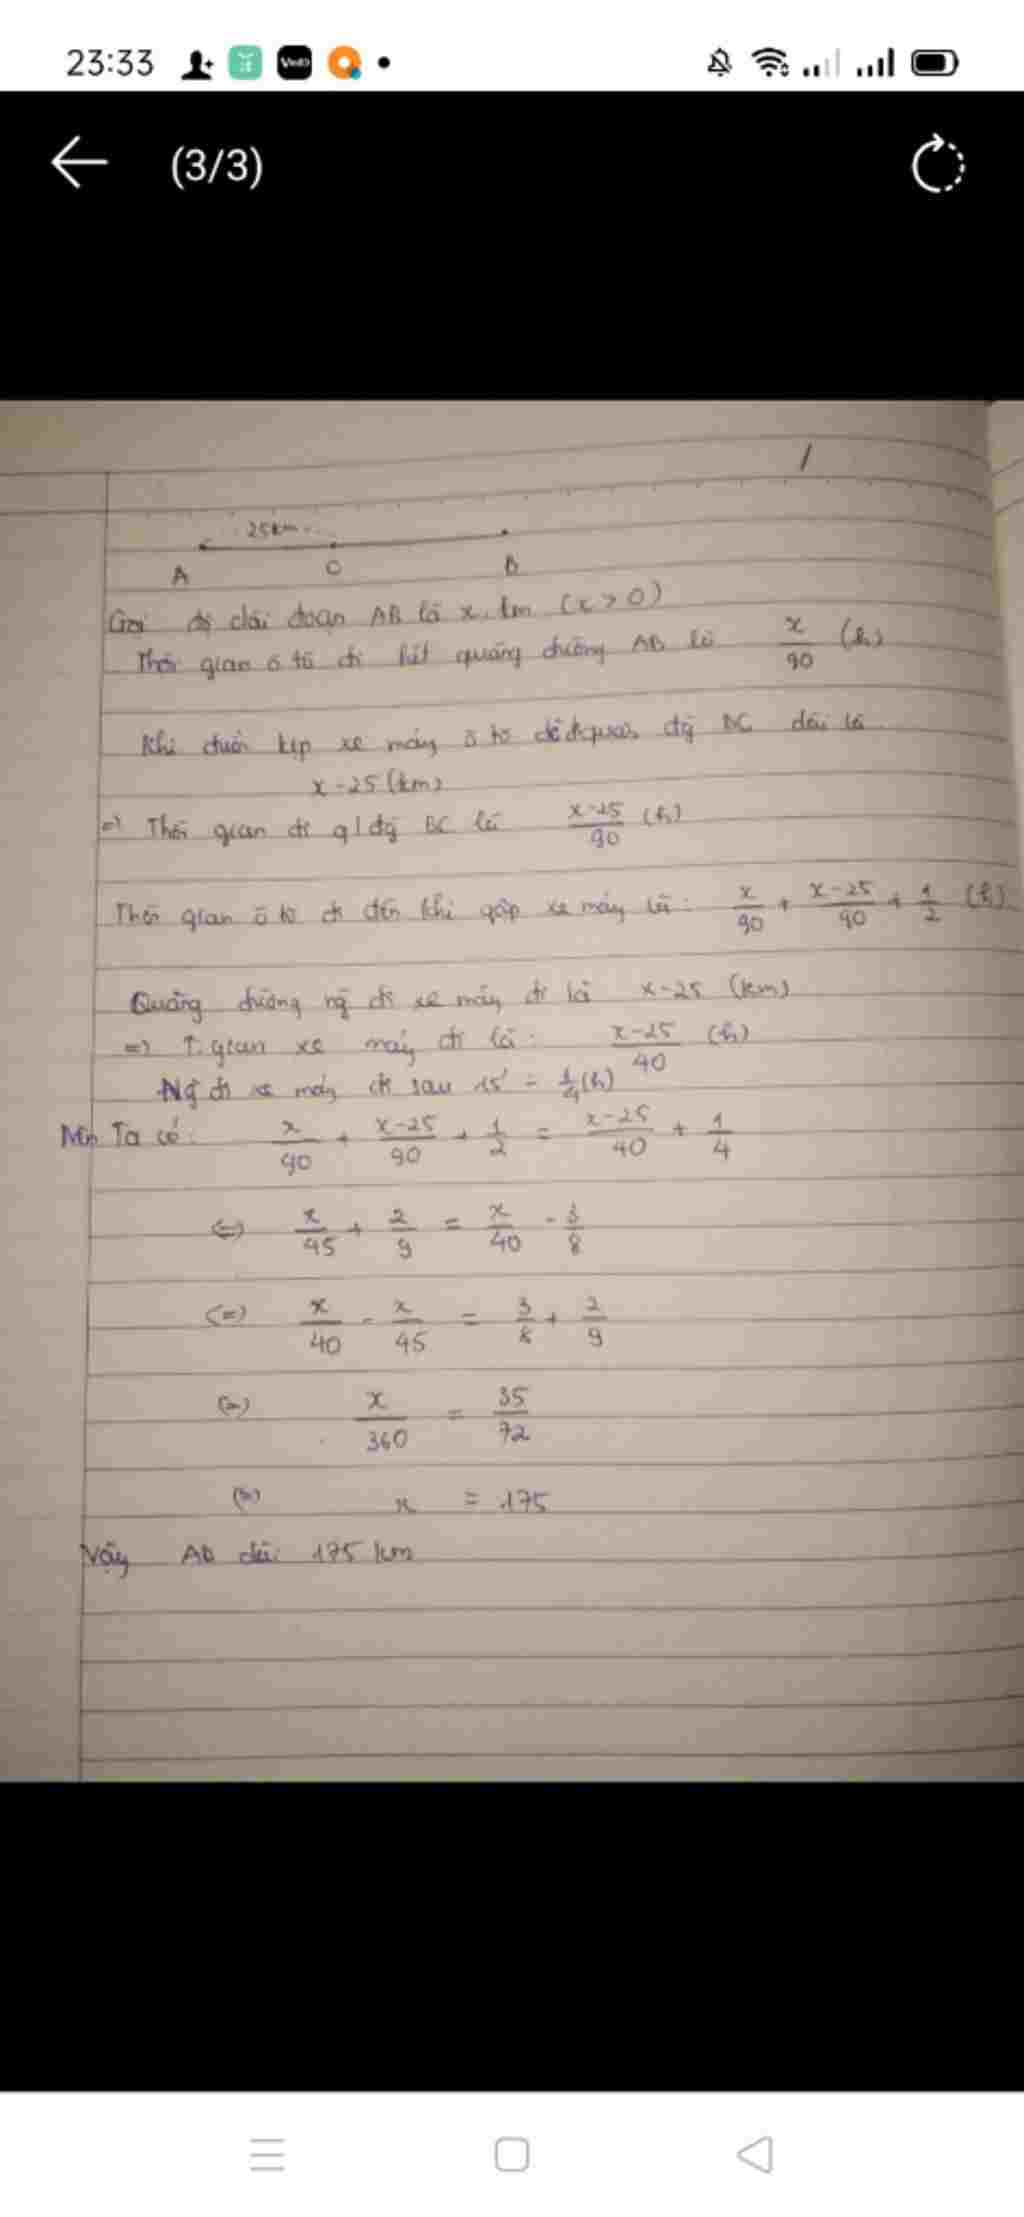 23:33
(3/3)
25km
A C B
Gọi độ dài đoạn AB là x, km (x > 0)
Thời gian ô tô đi hết quãng đường AB là x/90 (h)
Khi đuổi kịp xe máy ô tô đã đi quãng đg BC dài là
x - 25 (km)
=> Thời gian đi q/đg BC là x-25/90 (h)
Thời gian ô tô đi đến khi gặp xe máy là: x/90 + x-25/90 + 1/2 (h)
Quãng đường ng đi xe máy đi là x-25 (km)
=> T.gian xe máy đi là: x-25/40 (h)
Ng đi xe máy đi sau 15' = 1/4 (h)
Ta có: x/90 + x-25/90 + 1/2 = x-25/40 + 1/4
<=> x/45 + 2/9 = x/40 - 3/8
(=) x/40 - x/45 = 3/8 + 2/9
(=) x/360 = 35/72
(=) x = 175
Vậy AB dài 175 km